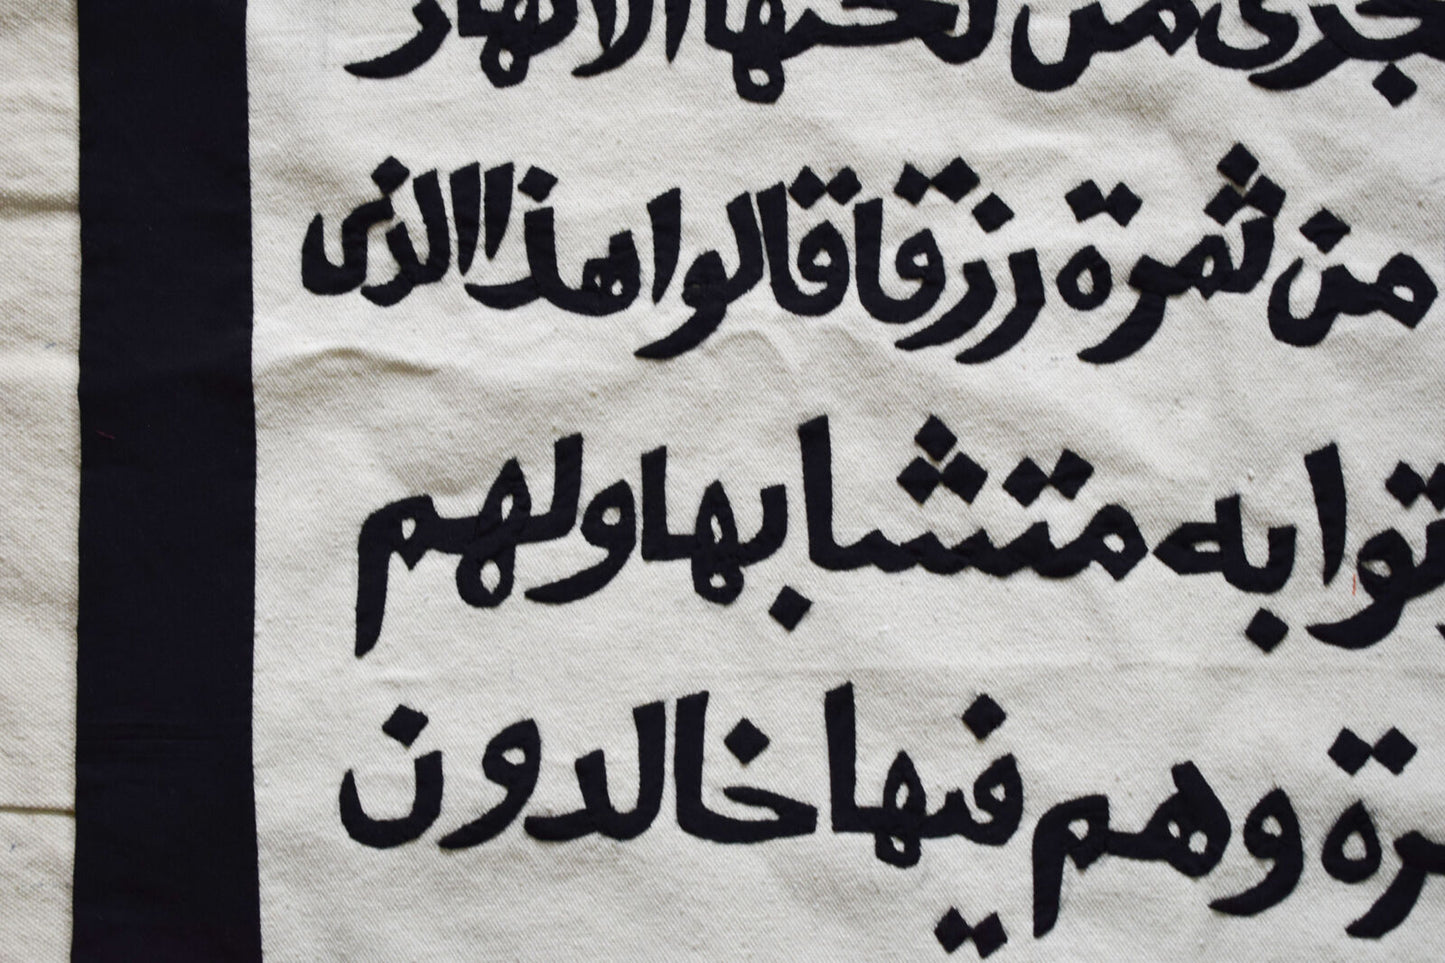 تجرى من تحتها الانهار
من ثمرة رزقا قالوا هذا الذى
توا به متشابها ولهم
رة وهم فيها خالدون